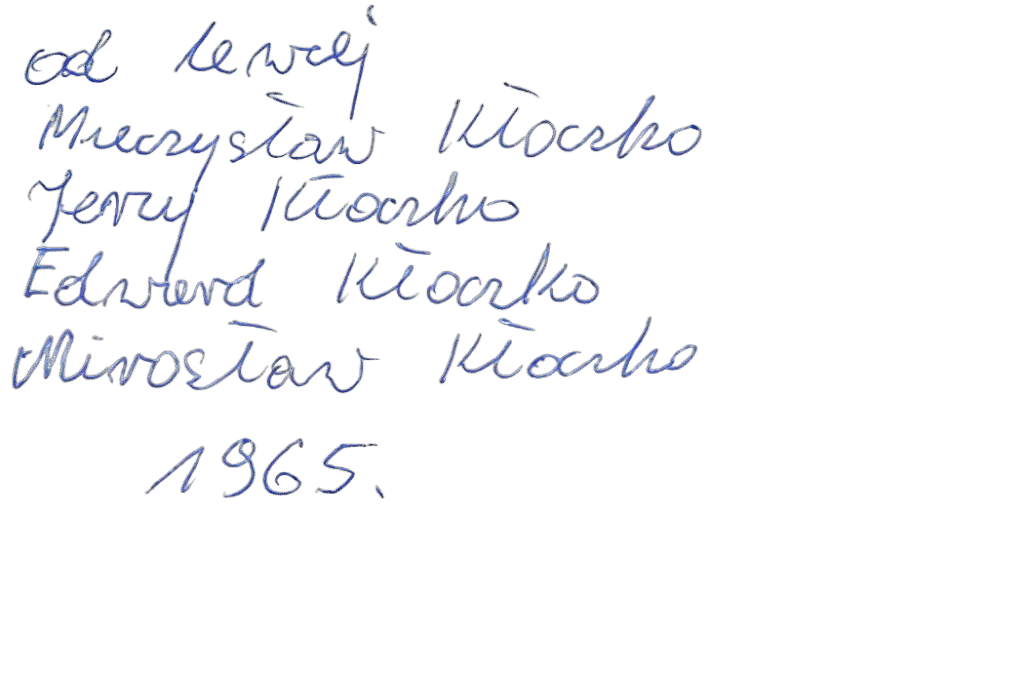 od lewej
Mieczysław Kłoczko
Jerzy Kłoczko
Edward Kłoczko
Mirosław Kłoczko
1965.